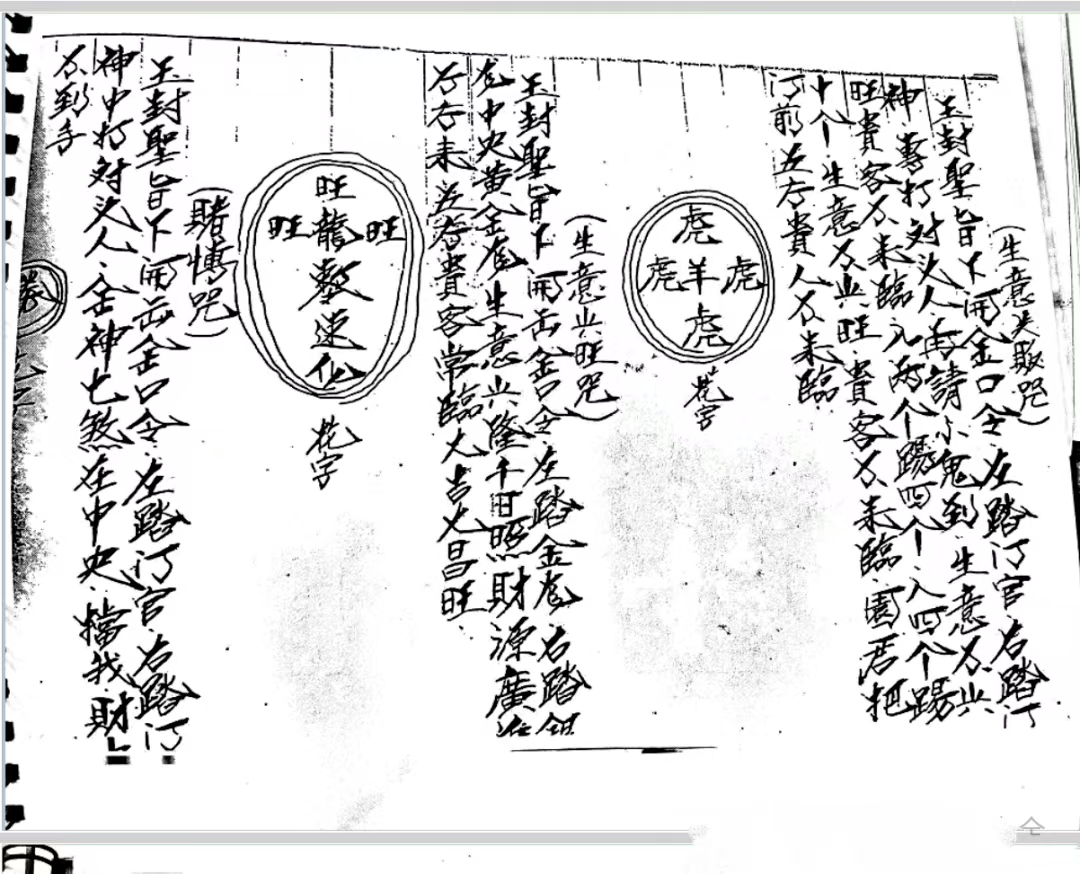 (生意失敗咒)
玉封聖旨下開金口令左踏门官右踏门
神專打对头人再請小鬼到生意不兴
旺貴客不来臨入两个踢四个入四个踢
十个生意不兴旺貴客不来臨園君把
门前左右貴人不来臨
虎
虎羊虎
虎
花字
(生意兴旺咒)
玉封聖旨下開金口令左踏金尨右踏銀
尨中央黄金尨生意兴隆千日照財源廣
右右来
貴客常臨大吉大昌旺
旺
旺龍旺
敕
速化
花字
(賭博咒)
玉封聖旨下開金口令左踏门官右踏门
神中打对头人金神七煞在中央擋我財
不到手